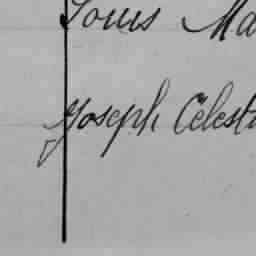 Louis Ma
Joseph Celest